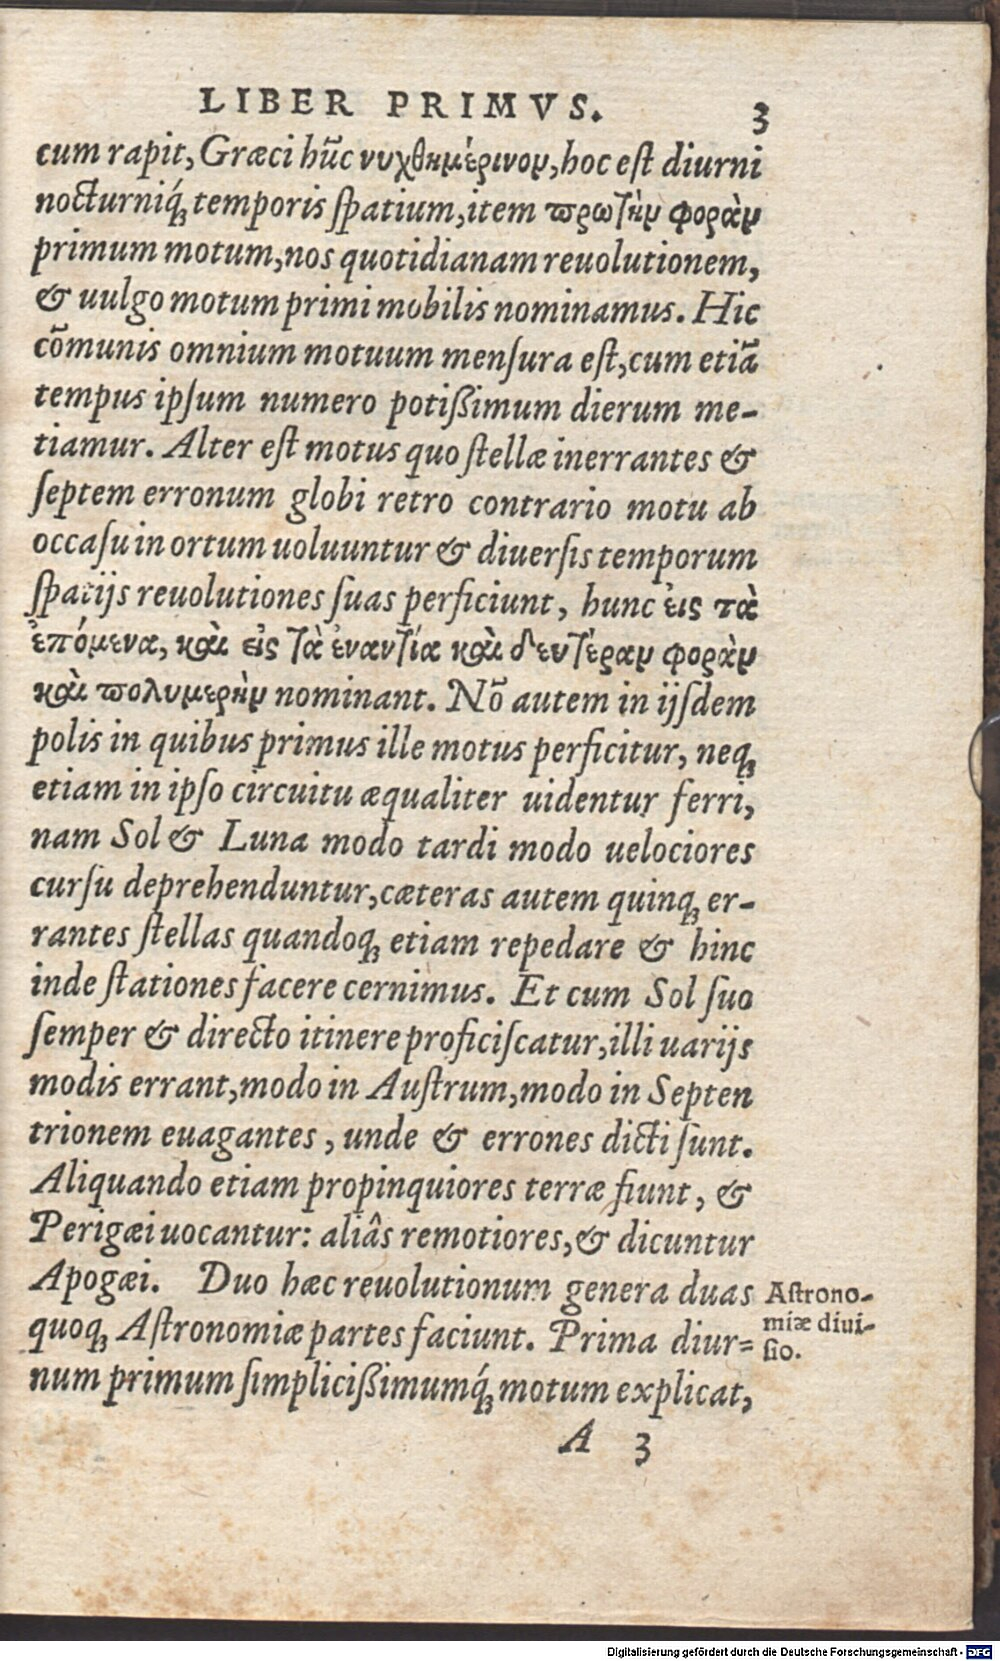 LIBER PRIMVS. 3
cum rapit, Græci hūc νυχθημέρινον, hoc est diurni
nocturniq́ꝫ temporis spatium, item πρωτὴν φορὰν
primum motum, nos quotidianam reuolutionem,
& uulgo motum primi mobilis nominamus. Hic
cōmunis omnium motuum mensura est, cum etiā
tempus ipsum numero potißimum dierum me-
tiamur. Alter est motus quo stellæ inerrantes &
septem erronum globi retro contrario motu ab
occasu in ortum uoluuntur & diuersis temporum
spatijs reuolutiones suas perficiunt, hunc ἐις τὰ
ἐπόμενα, καὶ εἰς τὰ ἐναντία καὶ δευτέραν φορὰν
καὶ πολυμερὴν nominant. Nō autem in ijsdem
polis in quibus primus ille motus perficitur, neqꝫ
etiam in ipso circuitu æqualiter uidentur ferri,
nam Sol & Luna modo tardi modo uelociores
cursu deprehenduntur, cæteras autem quinqꝫ er-
rantes stellas quandoqꝫ etiam repedare & hinc
inde stationes facere cernimus. Et cum Sol suo
semper & directo itinere proficiscatur, illi uarijs
modis errant, modo in Austrum, modo in Septen
trionem euagantes, unde & errones dicti sunt.
Aliquando etiam propinquiores terræ fiunt, &
Perigæi uocantur: aliâs remotiores, & dicuntur
Apogæi. Duo hæc reuolutionum genera duas
quoqꝫ Astronomiæ partes faciunt. Prima diur=
num primum simplicißimumq́ꝫ motum explicat,
Astrono-
miæ diui-
sio.
A 3
Digitalisierung gefördert durch die Deutsche Forschungsgemeinschaft - DFG